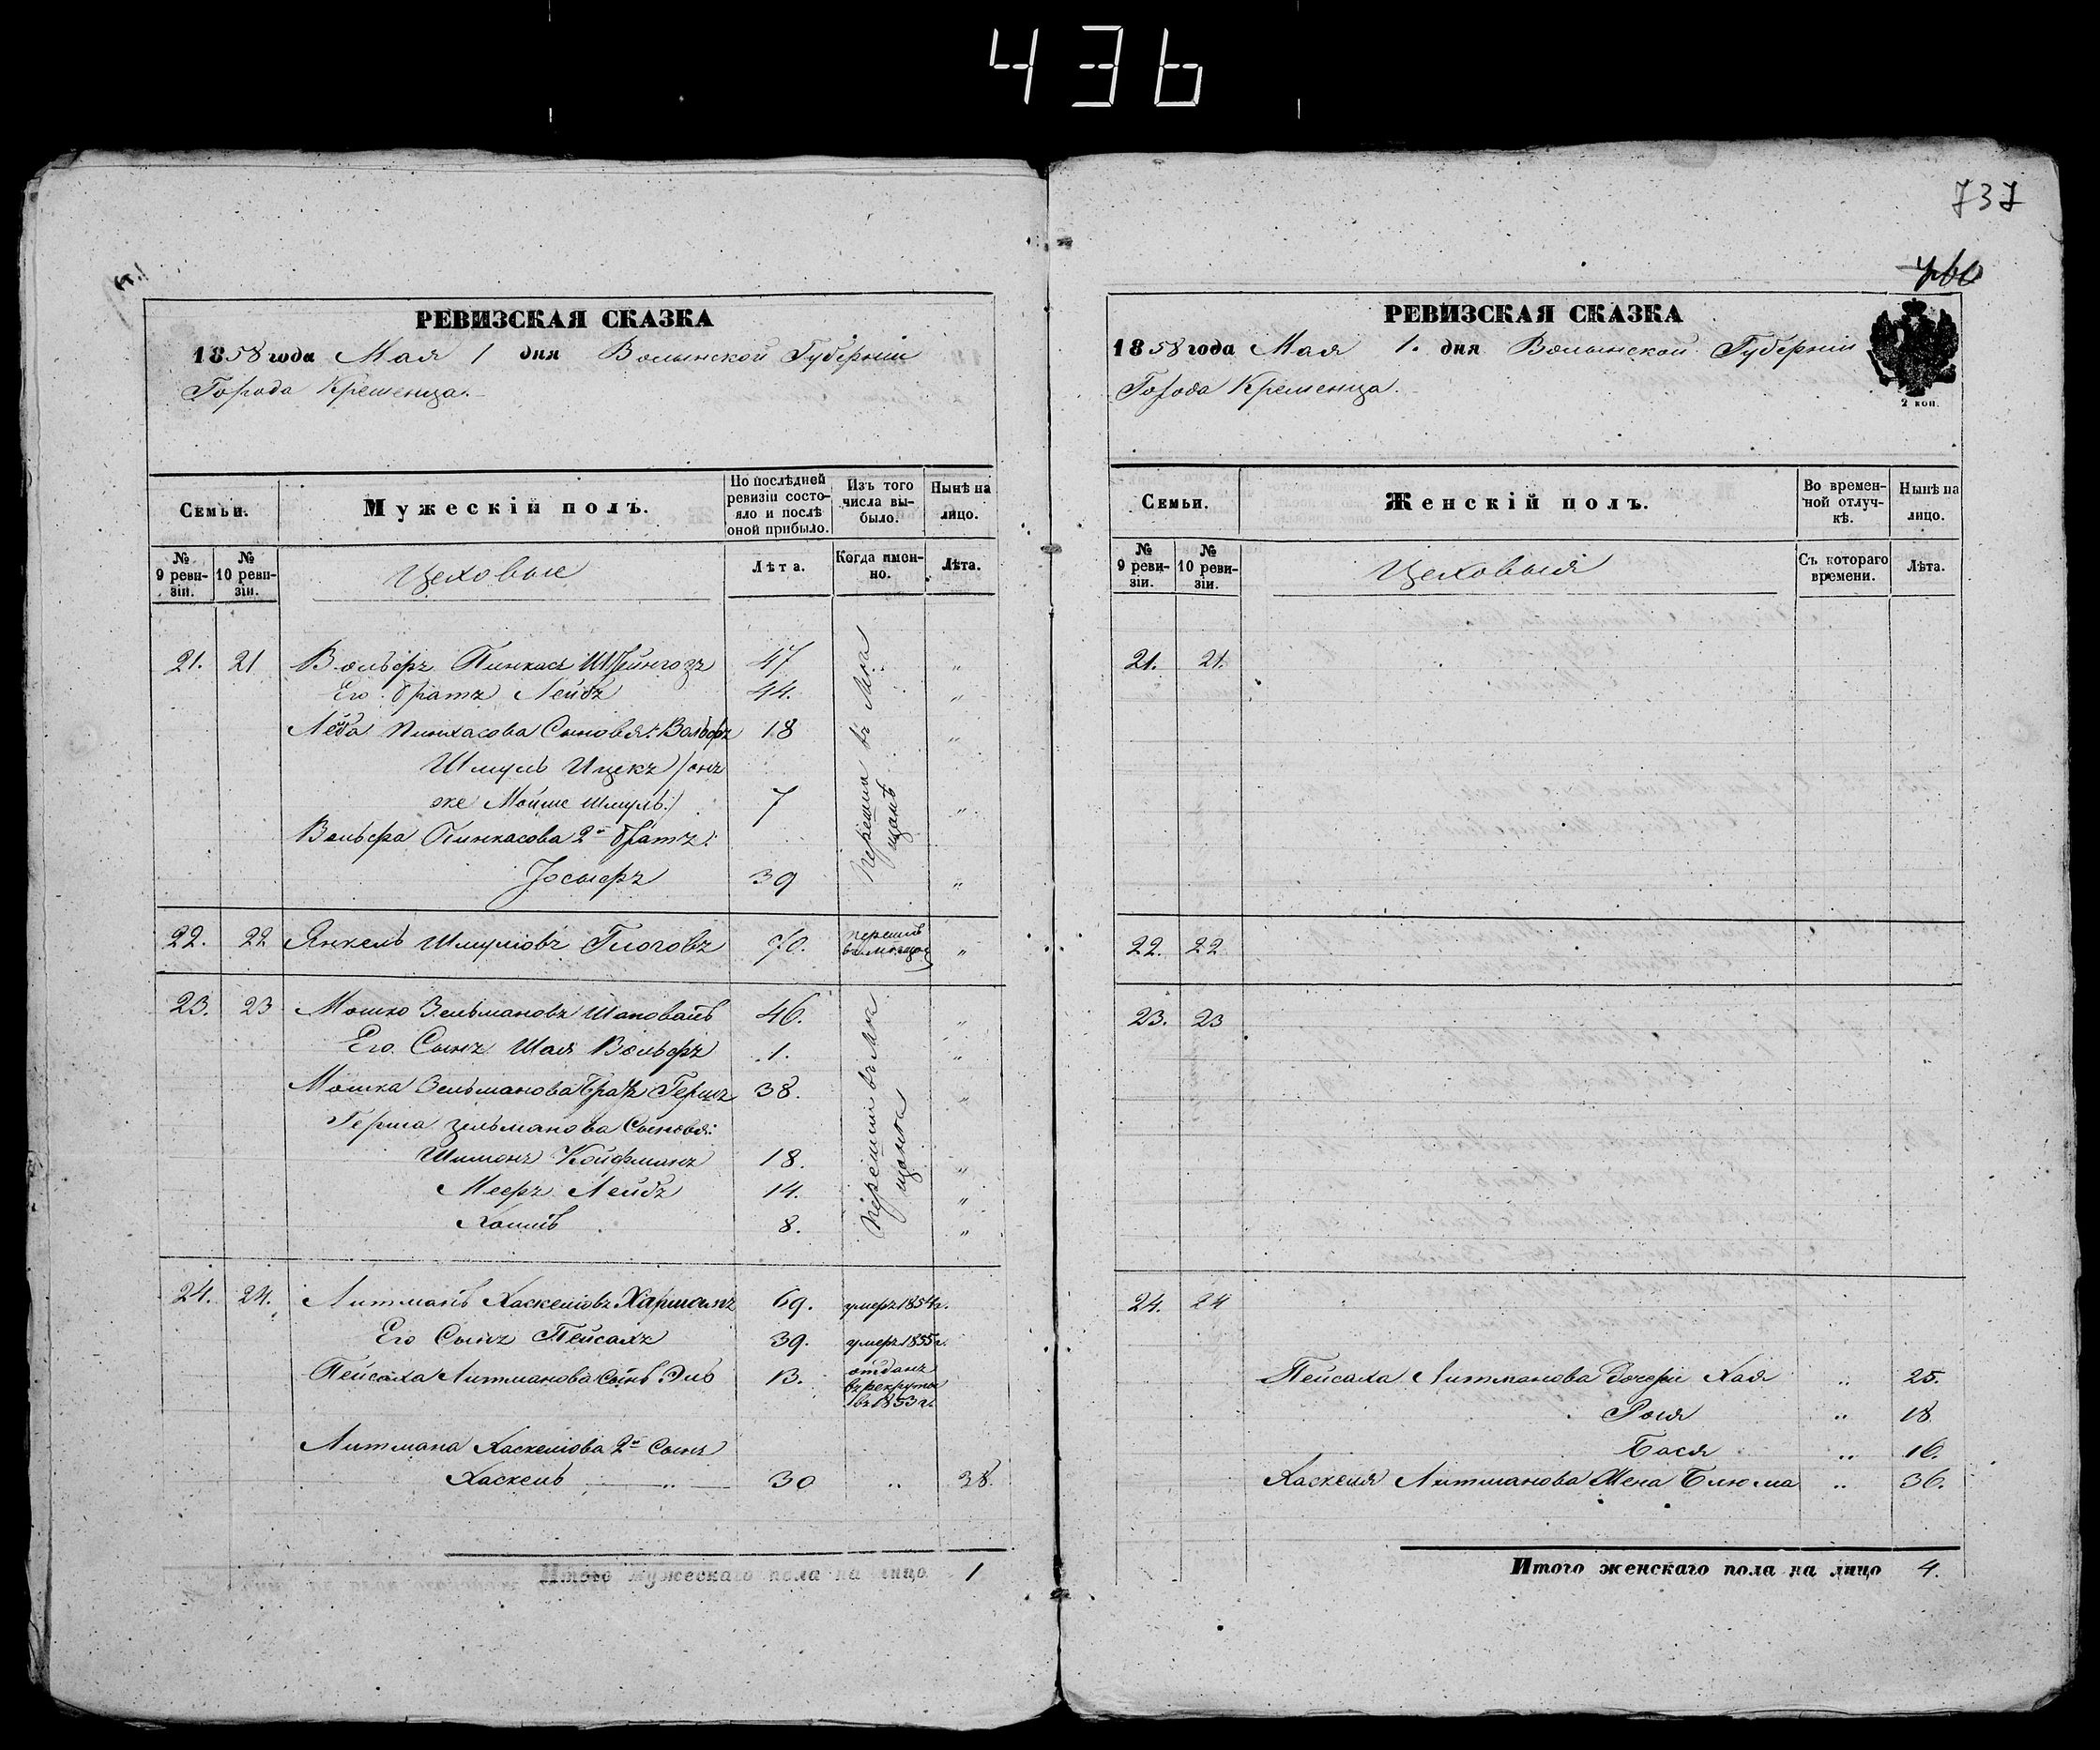 436
737
РЕВИЗСКАЯ СКАЗКА
1858 года Мая 1 дня Волынской Губерніи
Города Кременца.
Семьи.
Мужескій полъ.
По послѣдней ревизіи состо-
яло и послѣ оной прибыло.
Изъ того числа вы-
было.
Нынѣ на лицо.
№ 9 реви-
зіи.
№ 10 реви-
зіи.
Цеховые
Лѣта.
Когда имен-
но.
Лѣта.
21. 21 Вольфъ Пинкасъ 47 "
Его братъ Лейбъ 44. "
Лейба Пинхасова Сыновья: Вольфъ 18 "
Шмуль Ицекъ /онъ
же Мойше Шмуль:/ 7 "
Вольфа Пинкасова 2й братъ:
Іосыфъ 39 "
Перешли въ Мѣщанѣ
22. 22 Янкель Шмуліовъ Глоговъ 70. перешолъ въ мѣщан "
23. 23 Мошко Зельмановъ Шаповалъ 46. "
Его Сынъ Шая Вольфъ 1. "
Мошка Зельманова Братъ Гершъ 38. "
Герша Зельманова Сыновья:
Шимонъ Койфманъ 18. "
Мееръ Лейбъ 14. "
Хаимъ 8. "
Перешли въ Мѣщанѣ
24. 24. Литманъ Хаскеліовъ 69. умеръ 1854 г.
Его Сынъ Пейсахъ 39. умеръ 1855 г.
Пейсаха Литманова Сынъ Эль 13. отданъ
въ рекруты
въ 1853 г.
Литмана Хаскеліова 2й Сынъ
Хаскель — „ — 30 „ 38.
Итого мужескаго пола на лицо 1
РЕВИЗСКАЯ СКАЗКА
1858 года Мая 1. дня Волынской Губерніи
Города Кременца.
2 коп.
Семьи.
Женскій полъ.
Во времен-
ной отлуч-
кѣ.
Нынѣ на лицо.
№ 9 реви-
зіи.
№ 10 реви-
зіи.
Цеховыя
Съ котораго времени.
Лѣта.
21. 21.
22. 22
23. 23
24. 24
Пейсаха Литманова Дочери Хая „ 25.
Роля „ 18
Бася „ 16.
Хаскеля Литманова Жена Блюма „ 36.
Итого женскаго пола на лицо 4.